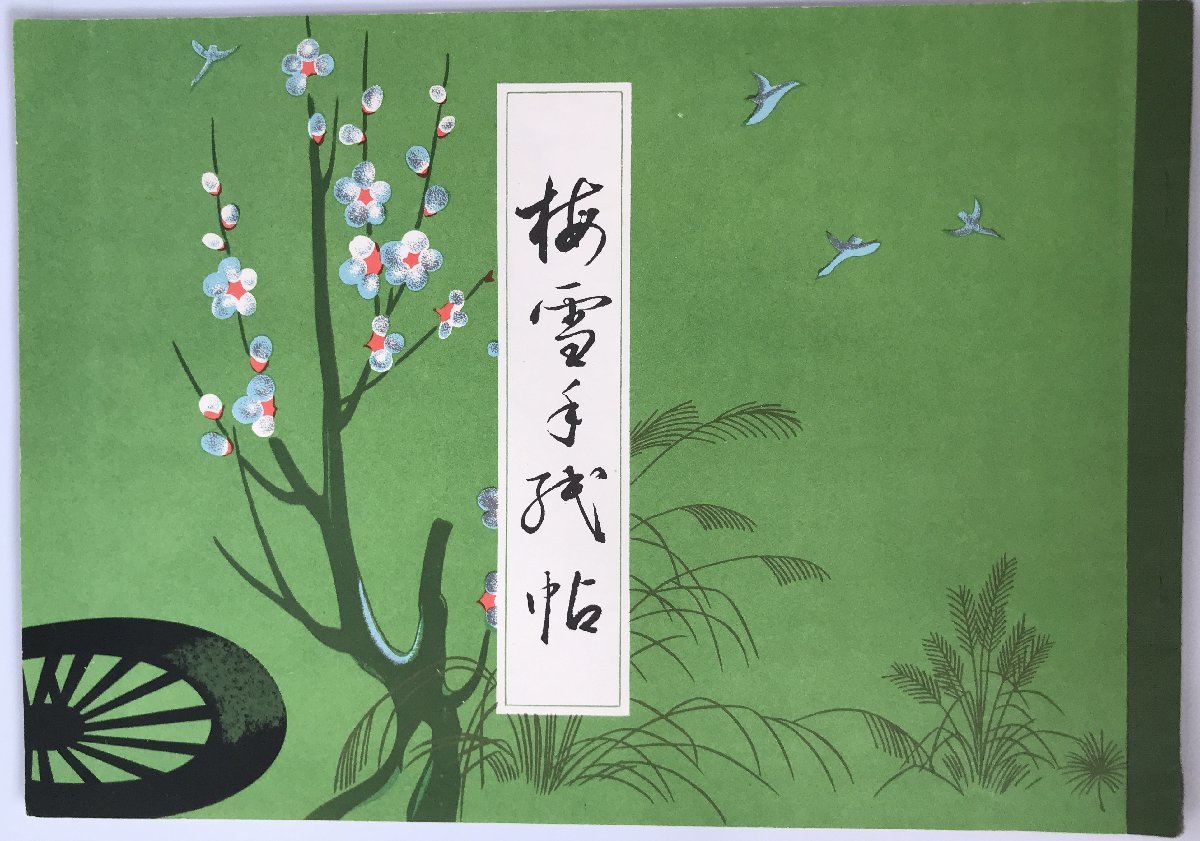 梅雪手紙帖